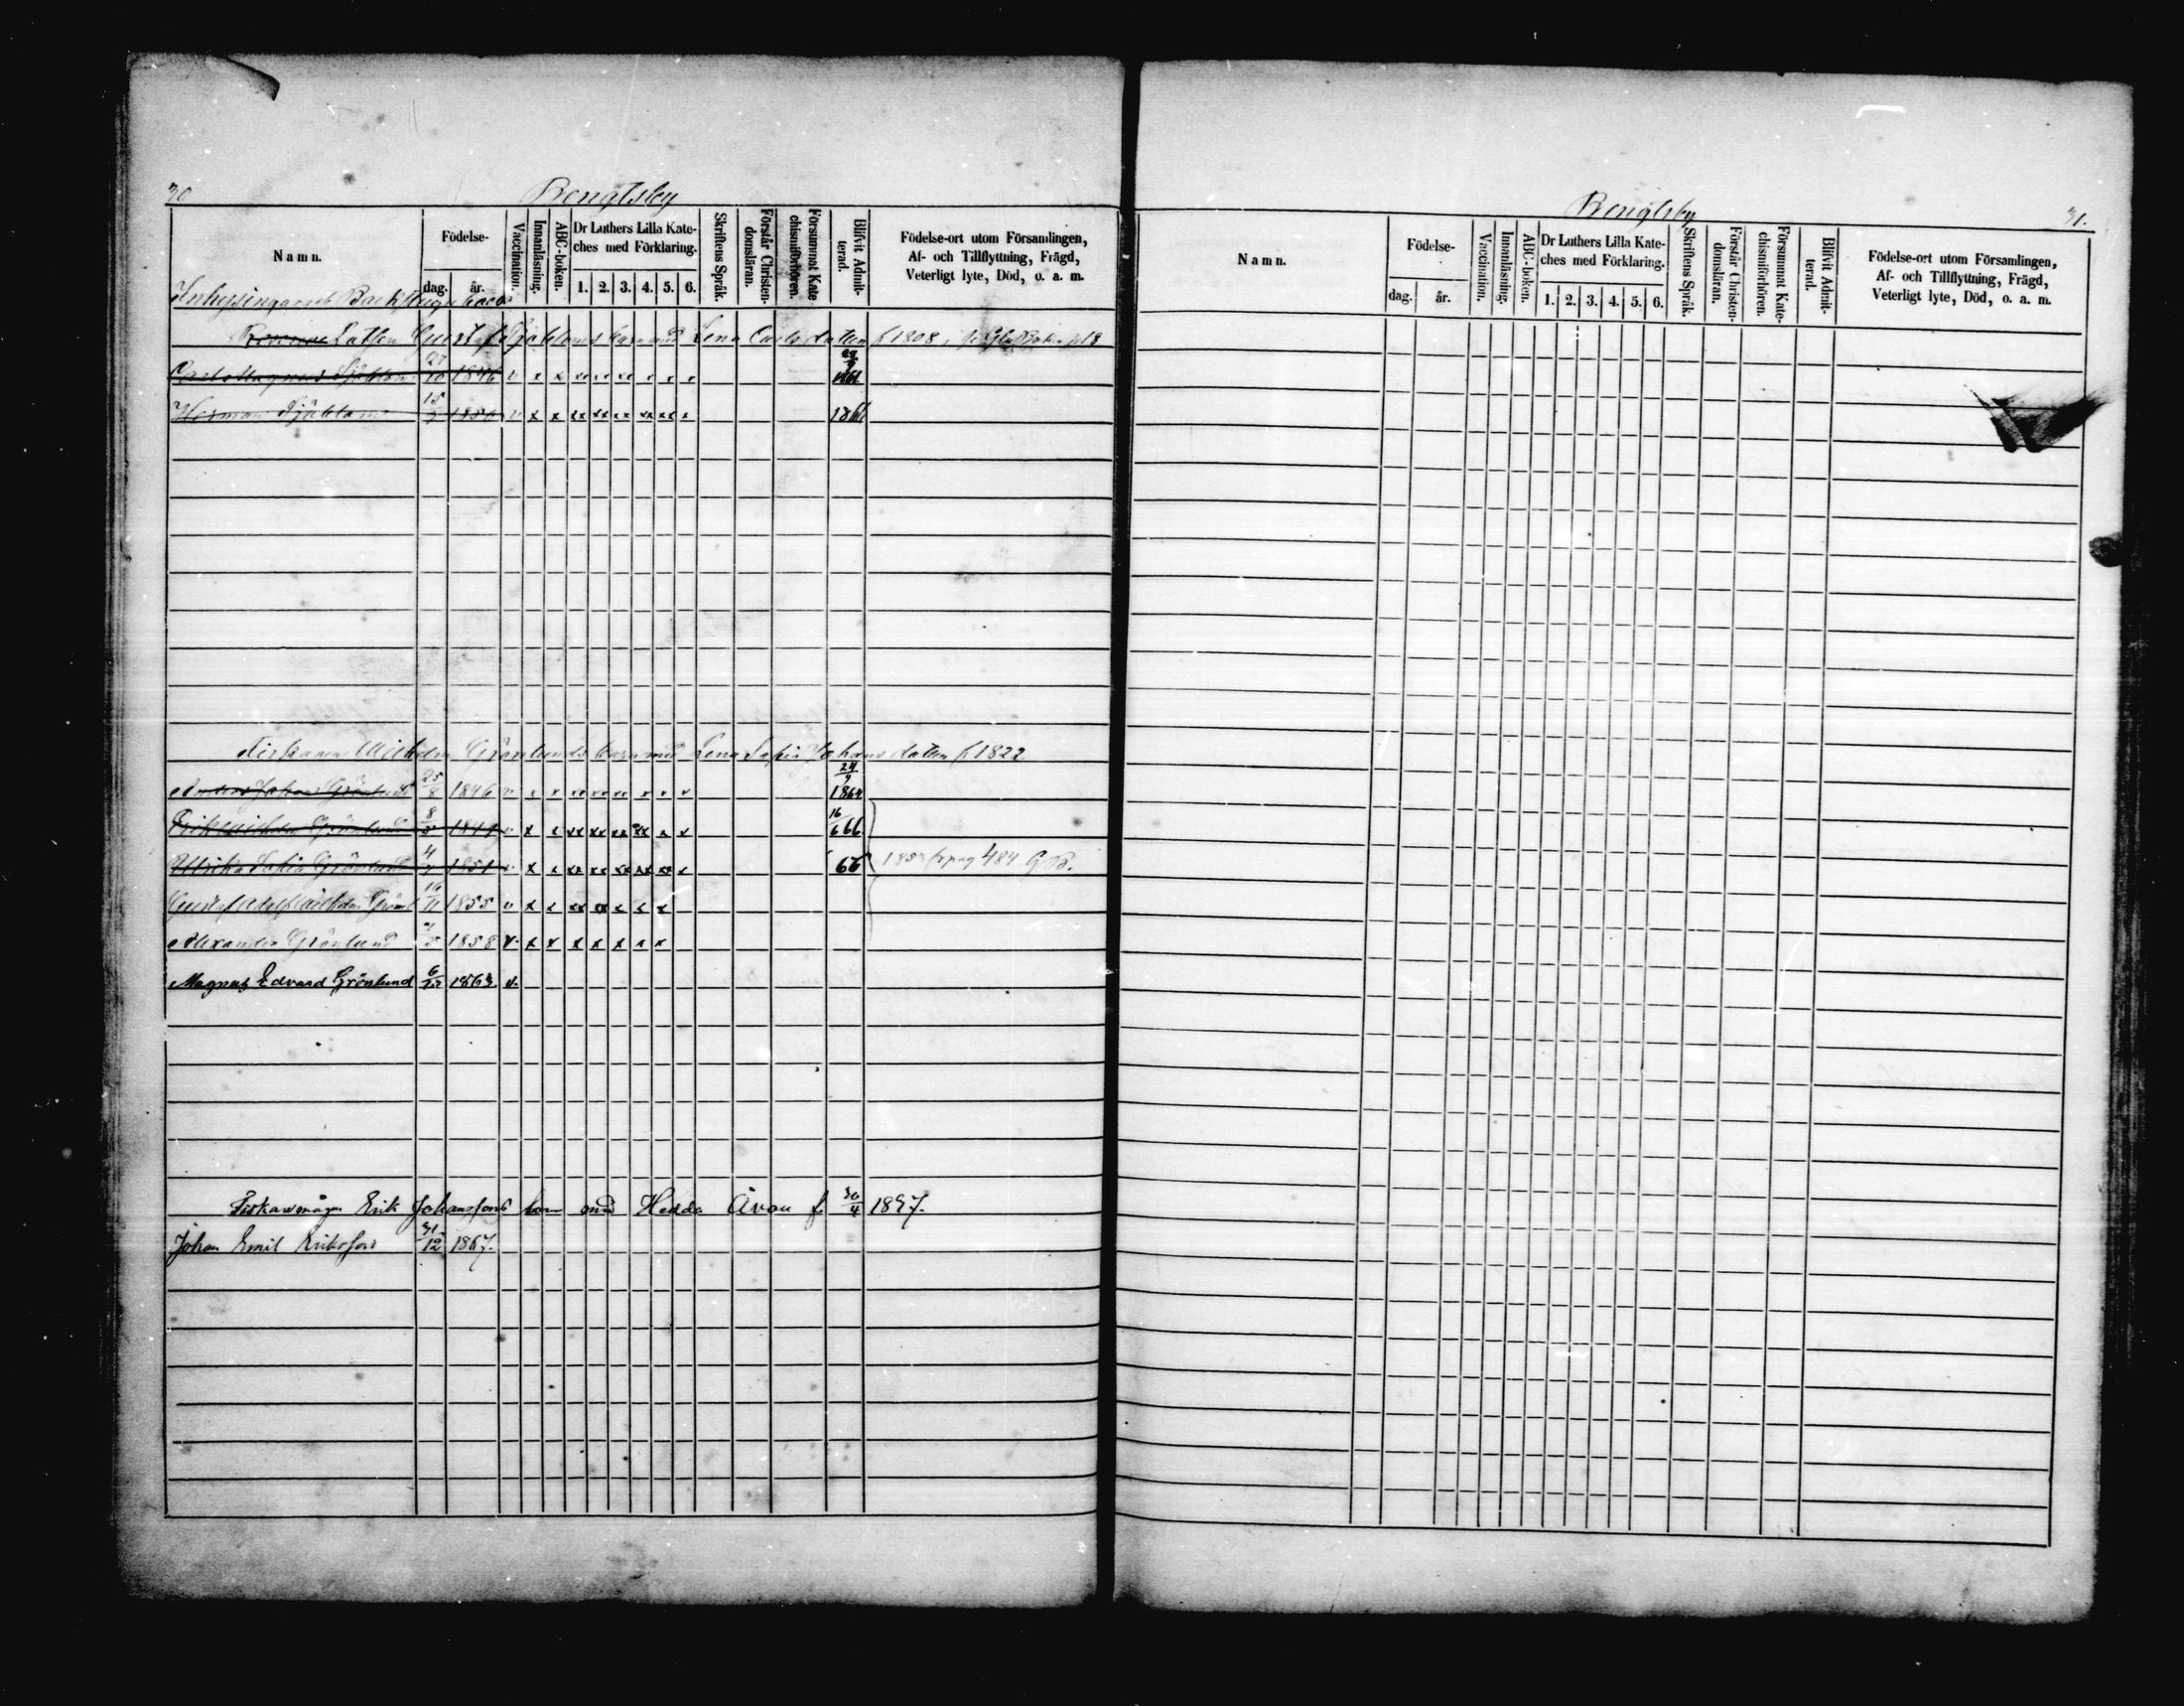 30
Bengtsby
Namn. Födelse- dag. år. Vaccination. Innanläsning. ABC-boken. Dr Luthers Lilla Kateches med Förklaring. 1. 2. 3. 4. 5. 6. Skriftens Språk. Förstår Christendomsläran. Försummat Katechismiförhören. Blifvit Admitterad. Födelse-ort utom Församlingen, Af- och Tillflyttning, Frägd, Veterligt lyte, Död, o. a. m.
Gustaf Sjöbloms barn med Lena Carlsdatter f 1808
Carl Magnus Sjöblom 27/10 1846 v x x xx xx xx x x x 1861
Herman Sjöblom 15 1850 v x x xx xx xx xx xx x 1866
Fiskaren Wilhelm Grönlunds barn med Lena Sofia Johansdatter f 1822
Anders Johan Grönlund 25/8 1846 v x x xx xx xx x x x 24/7 1864
Erik Wilhelm Grönlund 8 1849 v x x xx xx xx xx x x 16/6 66
Ulrika Sofia Grönlund 4 1851 v x x xx xx xx xx xx x 66 pag 484 G B.
Gustaf Adolf Wilhelm Grönl 16/11 1855 v x x xx xx x x x
Alexandra Grönlund 1858 v. x x x x x x x
Magnus Edvard Grönlund 6/12 1863. v.
Fiskaremågen Erik Johanssons barn med Hedda Åvau f. 30/4 1837.
Johan Emil Eriksson 31/12 1867.
Bengtsby
31.
Namn. Födelse- dag. år. Vaccination. Innanläsning. ABC-boken. Dr Luthers Lilla Kateches med Förklaring. 1. 2. 3. 4. 5. 6. Skriftens Språk. Förstår Christendomsläran. Försummat Katechismiförhören. Blifvit Admitterad. Födelse-ort utom Församlingen, Af- och Tillflyttning, Frägd, Veterligt lyte, Död, o. a. m.